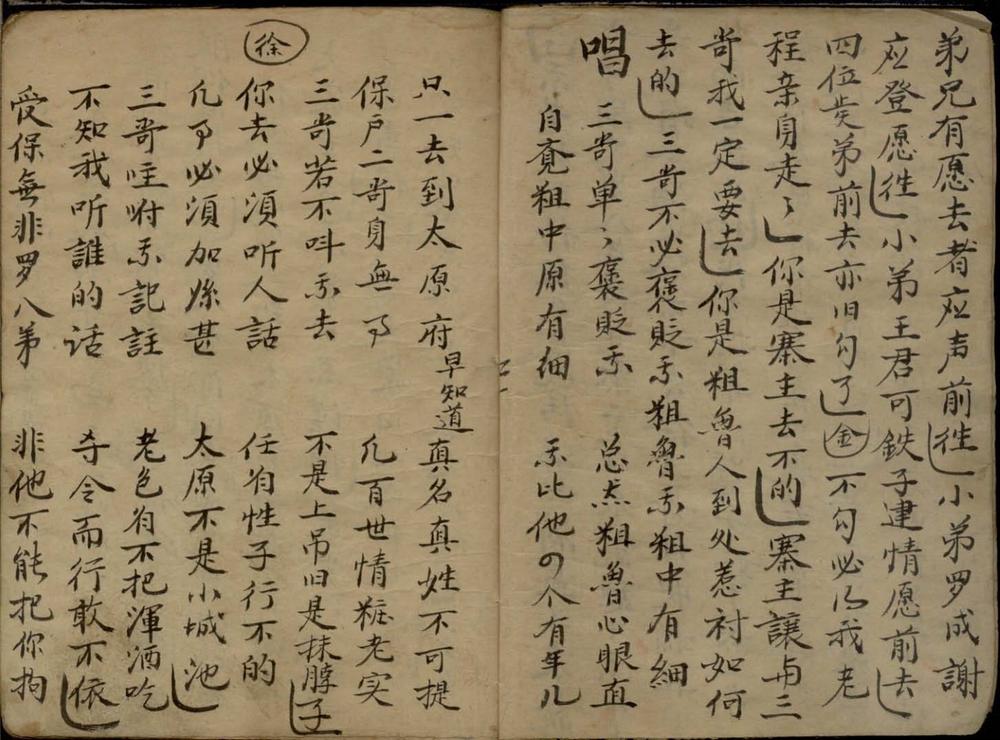 弟兄有愿去者应声前徃小弟罗成謝
应登愿徃小弟王君可鉄子建情愿前去
四位贤弟前去亦旧勾了金不勾必得我老
程亲身走々你是寨主去不的寨主讓与三
哥我一定要去你是粗魯人到处惹衬如何
去的三哥不必褒贬我粗魯我粗中有細
唱三哥单々褒贬我总然粗魯心眼直
自竟粗中原有细我比他四个有年儿
只一去到太原府早知道真名真姓不可提
保戶二哥身無事凡百世情粧老实
三哥若不呌我去不是上吊旧是抹脖子
徐
你去必須听人話任有性子行不的
凡事必須加孫甚太原不是小城池
三哥咐我記註老色有不把渾酒吃
不知我听誰的话夺令而行敢不依
受保無非罗八弟非他不能把你拘